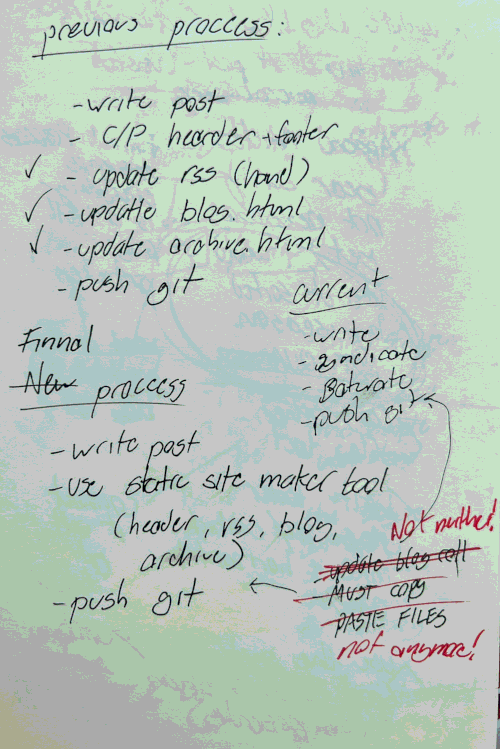 previous proccess:
- write post
- C/P hearder + footer
✓ - update rss (hand)
✓ - updatle blog.html
✓ - update archive.html
- push git
current
- write
- syndicate
- Saturate
- push git
Finnal
New proccess
- write post
- use static site maker tool
(header, rss, blog,
archive)
- push git
Not neither!
update blog
MUST copy
PASTE FILES
not anymore!